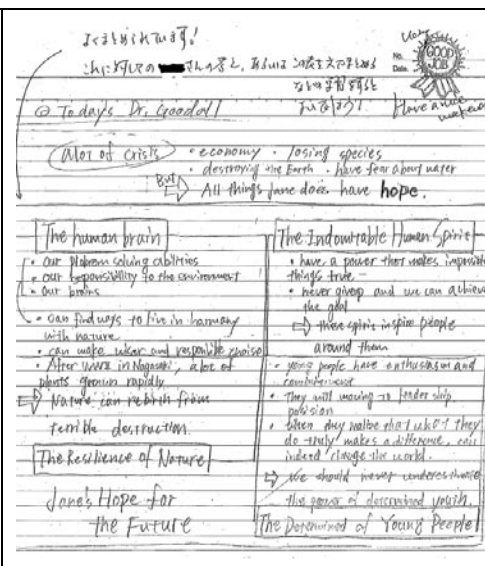 よくまとめられています!
これに対しての さんの考え、あるいは
Very
GOOD
JOB
No.
Date.
Have a nice
◎ Today's Dr. Goodall
A lot of crisis
・economy ・losing species
・destroying the Earth ・have fear about water
But
⇨ All things Jane does have hope.
The human brain
・our plobrem solving cabilities
・our responsibility to the environment
・our brains
・can find ways to live in harmony
with nature
・can make wiser and responsible choise
・After WWII in Nagasaki, a lot of
plants grown rapidly
⇨ Nature can rebirth from
terrible destruction.
The Resilience of Nature
Jane's Hope for
the Future
The Indomitable Human Spirit
・have a power that makes impossible
things true
・never giveup and we can achieve
the goal
⇨ these spirit inspire people
around them
・young people have enthusiasm and
commitment
・They will moving to leader ship
position
・When they realize that what they
do truly makes a difference, can
indeed change the world.
⇨ We should never underestimate
the power of determined youth.
The Determined of Young People